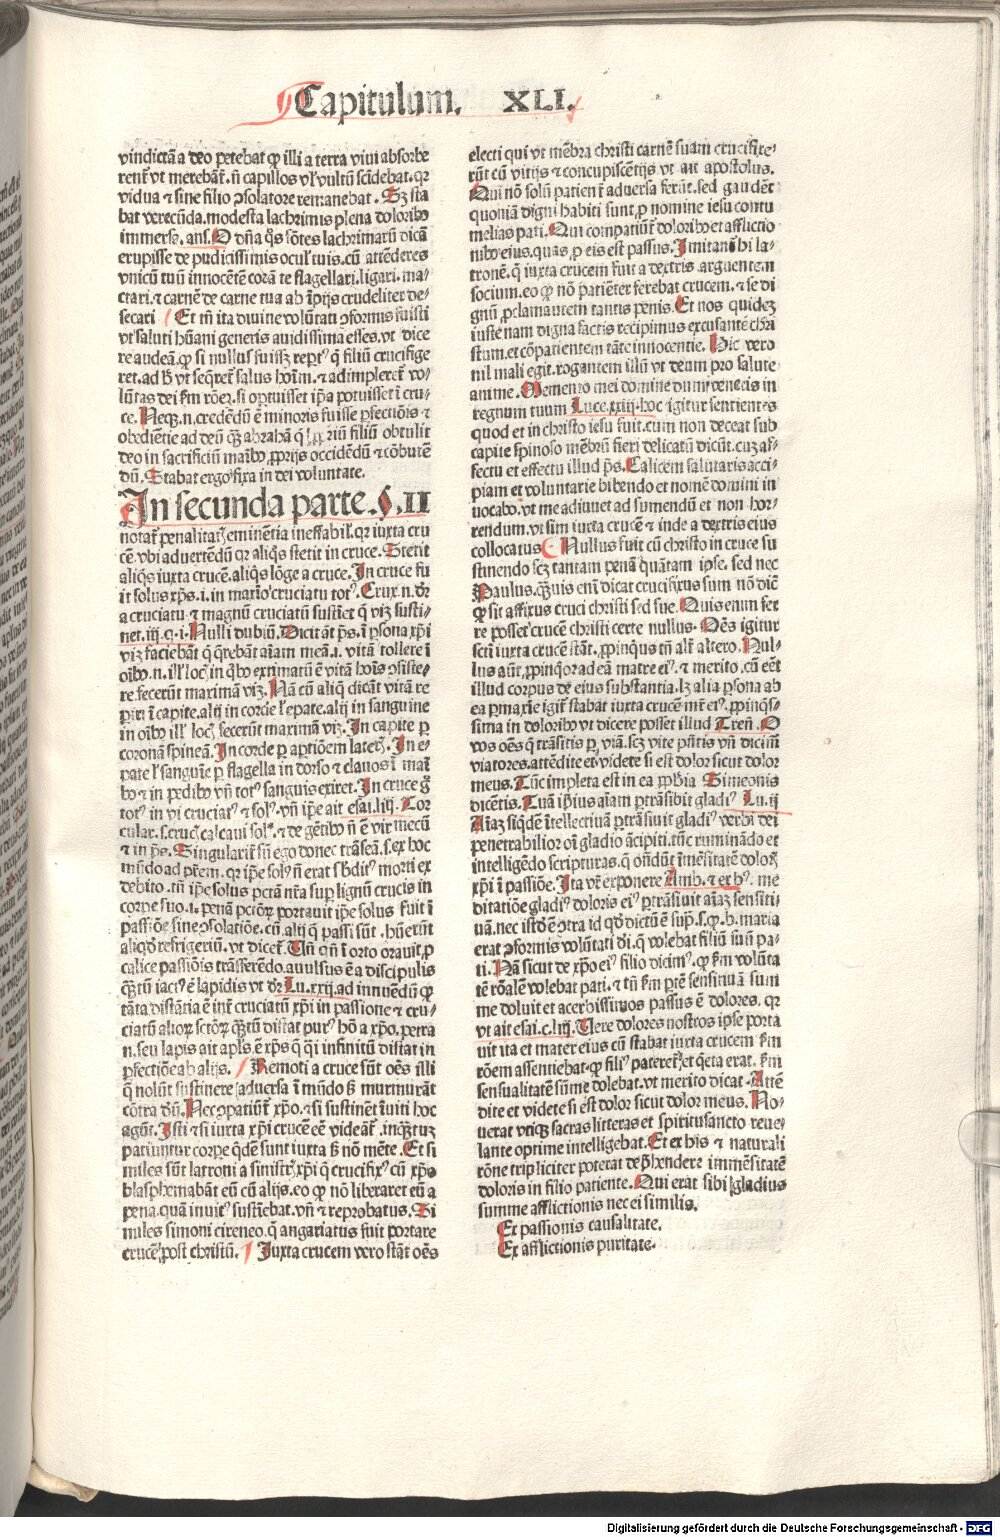 Capitulum. XLI.
vindictā a deo petebat ꝙ illi a terra viui absorbe
rent᷑ vt merebāt᷑. n̄ capillos vl' vultū scīdebat. qꝛ
vidua ⁊ sine filio ꝯsolatore remanebat. Sꝫ sta
bat verecūda. modesta lachrimis plena doloribꝰ
immersa. ans. O dn̄a q̄s fōtes lachrimarū dicā
erupisse de pudicissimis ocul' tuis. cū attēderes
vnicū tuū innocētē corā te flagellari. ligari. ma-
ctari. ⁊ carnē de carne tua ab īpijs crudeliter de-
secari Et tn̄ ita diuine volūtati ꝯformis fuisti
vt saluti hūani generis auidissima esses. vt dice
re audeā. ꝙ si nullus fuissꝫ reptꝰ q̄ filiū crucifige
ret. ad h̄ vt seq̄ret᷑ salus hoīm. ⁊ adimpleret᷑ vo-
lūtas dei fm̄ rōeꝫ. si oꝑtuisset ip̄a potuisset ī cru-
ce. Neqꝫ .n. credēdū ē minoris fuisse ꝑfectiōis ⁊
obediētie ad deū q̄ꝫ abrahā q̄ ꝓpriū filiū obtulit
deo in sacrificiū maibꝰ ꝓprijs occidēdū ⁊ cōburē
dū. Stabat ergo fixa in dei voluntate.
In secunda parte. §. II
notat᷑ penalitatꝫ eminētia ineffabil'. qꝛ iuxta cru
cē. vbi aduertēdū qꝛ aliq̄s stetit in cruce. Stetit
aliq̄s iuxta crucē. aliq̄s lōge a cruce. In cruce fu
it solus xp̄s .i. in maxīo cruciatu totꝰ. Crux .n. dr̄
a cruciatu ⁊ magnū cruciatū sustiet q̄ viꝫ susti-
net. iij. q. i. Nulli dubiū. Dicit āt ps. ī ꝑsona xp̄i
viꝫ faciebāt q̄ q̄rebāt aīam meā .i. vitā tollere ī
oībꝰ .n. ill' locꝭ in q̄bꝰ extimatū ē vitā hoīs ꝯsiste-
re. fecerūt maximā viꝫ. Nā cū aliq̄ dicāt vitā re
periri ī capite. alij in corde l' epate. alij in sanguine
in oībꝰ ill' locꝭ fecerūt maximā viꝫ. In capite ꝑ
coronā spineā. In corde ꝑ aptiōem laterꝭ. In e-
pate l' sanguīe ꝑ flagella in dorso ⁊ clauos ī mai
bꝰ ⁊ in pedibꝰ vn̄ totꝰ sanguis exiret. In cruce g̊
totꝰ in vi cruciatꝰ ⁊ solꝰ. vn̄ ip̄e ait esai. liij. Tor
cular .s. crucꝭ calcaui solꝰ. ⁊ de gētibꝰ n̄ ē vir mecū
⁊ in ps. Singularit᷑ sū ego donec trāseā. s. ex hoc
mūdo ad pr̄em. qꝛ ip̄e solꝰ n̄ erat s̄bditꝰ morti ex
debito. tn̄ ip̄e solus pctā nr̄a sup lignū crucis in
corpe suo .i. penā pctōꝝ portauit ip̄e solus fuit ī
passiōe sine ꝯsolatiōe. cū alij q̄ passi sūt hūerūt
aliqd̄ refrigeriū. vt dicet᷑. Vn̄ qn̄ ī orto orauit ꝓ
calice passiōis trāsferēdo. auulsus ē a discipulis
q̄ꝫtū iactꝰ ē lapidis vt dr̄ Lu. xxij. ad innuēdū ꝙ
tāta distātia ē int᷑ cruciatū xp̄i in passione ⁊ cru-
ciatū alioꝝ sctōꝝ q̄ꝫtū distat purꝰ hō a xp̄o. petra
n. seu lapis ait apl's ē xp̄s q̄ qi infinitū distat in
ꝑfectiōe ab alijs. Remoti a cruce sūt oēs illi
q̄ nolūt sustinere aduersa ī mūdo s̄ murmurāt
cōtra dn̄. Nec ꝯpatiūt᷑ xp̄o. ⁊ si sustinēt īuiti hoc
agūt. Isti ⁊ si iuxta xp̄i crucē eē videāt᷑. inq̄ꝫtuꝫ
patiuntur corpe q̄dē sunt iuxta s̄ nō mēte. Et si
miles sūt latroni a sinistrꝭ xp̄i q̄ crucifixꝰ cū xp̄o
blasphemabāt eū cū alijs. eo ꝙ nō liberaret eū a
pena. quā inuitꝰ sustiebat. vn̄ ⁊ reprobatus. Si
miles simoni cireneo. q̄ angariatus fuit portare
crucē post christū. Iuxta crucem vero stāt oēs
electi qui vt mēbra christi carnē suam crucifixe-
rūt cū vitijs ⁊ concupiscētijs. vt ait apostolus.
Qui nō solū patient᷑ aduersa ferūt. sed gaudēt
quoniā digni habiti sunt. ꝓ nomine iesu contu
melias pati. Qui compatiūt᷑ doloribꝰ et afflictio
nibꝰ eius. quas ꝓ eis est passus. Imitant᷑ hi la-
tronē. q̄ iuxta crucem fuit a dextris arguentem
socium. eo ꝙ nō patiēter ferebat crucem. ⁊ se di
gnū ꝓclamautem tantis penis. Et nos quideꝫ
iuste nam digna factis recipimus excusantē chri
stum. et cōpatientem tāte innocentie. Hic vero
nil mali egit. rogantem illū vt deum pro salute
anime. Memento mei domine dum veneris in
regnum tuum Luce. xxiij. hoc igitur sentientes
quod et in christo iesu fuit. cum non deceat sub
capite spinoso mēbrū fieri delicatū dicūt. cuꝫ af-
fectu et effectu illud ps. Calicem salutaris acci-
piam et voluntarie bibendo et nomē domini in
uocabo. vt me adiuuet ad sumendū et non hor-
rendum. vt sim iuxta crucē ⁊ inde a dextris eius
collocatus Nullus fuit cū christo in cruce su
stinendo scꝫ tantam penā quātam ipse. sed nec
Paulus. q̄ꝫuis eni dicat crucifixus sum nō dic̄
ꝙ sit affixus cruci christi sed sue. Quis enim fer
re posset crucē christi certe nullus. Oēs igitur
scti iuxta crucē stāt. ꝓpinqus tn̄ alt᷑ altero. Nul-
lus aūt. ꝓpinqꝰ ad eā matre eiꝰ. ⁊ merito. cū eēt
illud corpus de eius substantia. lꝫ alia ꝑsona ab
ea ꝑmaxīe igit᷑ stabat iuxta crucē mr̄ eiꝰ. ꝓpinq̄s-
sima in doloribꝰ vt dicere posset illud Tren̄. O
vos oēs q̄ trāsitis ꝑ viā. scꝫ vite pn̄tis vn̄ dicunt᷑
viatores. attēdite et videte si est dolor sicut dolor
meus. Tūc impleta est in ea ꝓphia Simeonis
dicētis. Tuā ip̄ius aīam ꝑtrāsibit gladiꝰ Lu. ij
Aīaꝫ siq̄dē ītellectiuā ꝑtrāsiuit gladiꝰ verbi dei
penetrabilior oī gladio ācipiti. tūc ruminādo et
intelligēdo scripturas. q̄ on̄dūt īmēsitatē doloꝝ
xp̄i ī passiōe. Ita vr̄ exponere Amb. ⁊ ex hꝰ. me
ditatiōe gladiꝰ doloris eiꝰ ꝑtrāsiuit aīaꝫ sensiti-
uā. nec istd̄ ē ꝯtra id qd̄ dictū ē supͣ. s. ꝙ. b. maria
erat ꝯformis volūtati dei. q̄ volebat filiū suū pa-
ti. Nā sicut de xp̄o eiꝰ filio dicimꝰ. ꝙ fm̄ volūta
tē rōalē volebat pati. ⁊ tn̄ fm̄ ptē sensitiuā sum
me doluit et acerbissimos passus ē dolores. qꝛ
vt ait esai. c. liij. Vere dolores nostros ipse porta
uit ita et mater eius cū stabat iuxta crucem fm̄
rōem assentiebat. ꝙ filiꝰ pateret᷑. et q̄eta erat. fm̄
sensualitatē sūme dolebat. vt merito dicat. Attē
dite et videte si est dolor sicut dolor meus. No-
uerat vtiqꝫ sacras litteras et spiritusancto reue-
lante optime intelligebat. Et ex his ⁊ naturali
rōne tripliciter poterat dep̄hendere immēsitatē
doloris in filio patiente. Qui erat sibi gladius
summe afflictionis nec ei similis.
Ex passionis causalitate.
Ex afflictionis puritate.
Digitalisierung gefördert durch die Deutsche Forschungsgemeinschaft - DFG